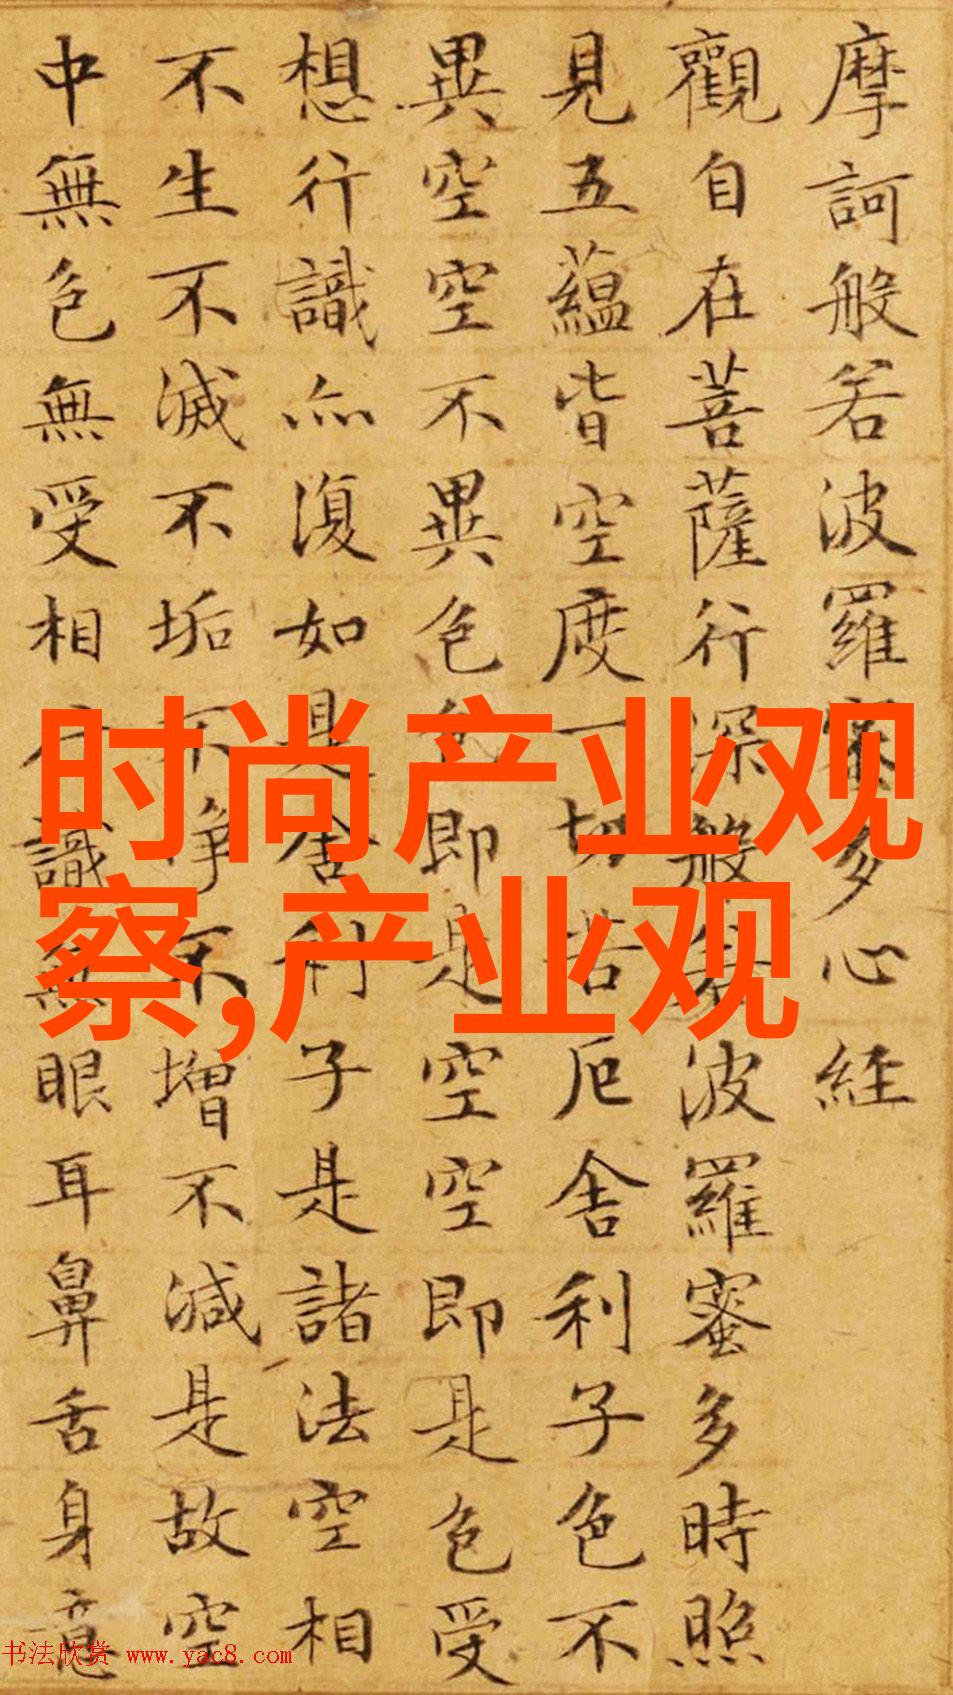 摩訶般若波羅蜜多心經
觀自在菩薩行深般若波羅蜜多時照
見五蘊皆空度一切苦厄舍利子色不
異空空不異色色即是空空即是色受
想行識亦復如是舍利子是諸法空相
不生不滅不垢不淨不增不減是故空
中無色無受相行識無眼耳鼻舌身意
时尚产业观
察,产业观
书法欣赏 www.yac8.com